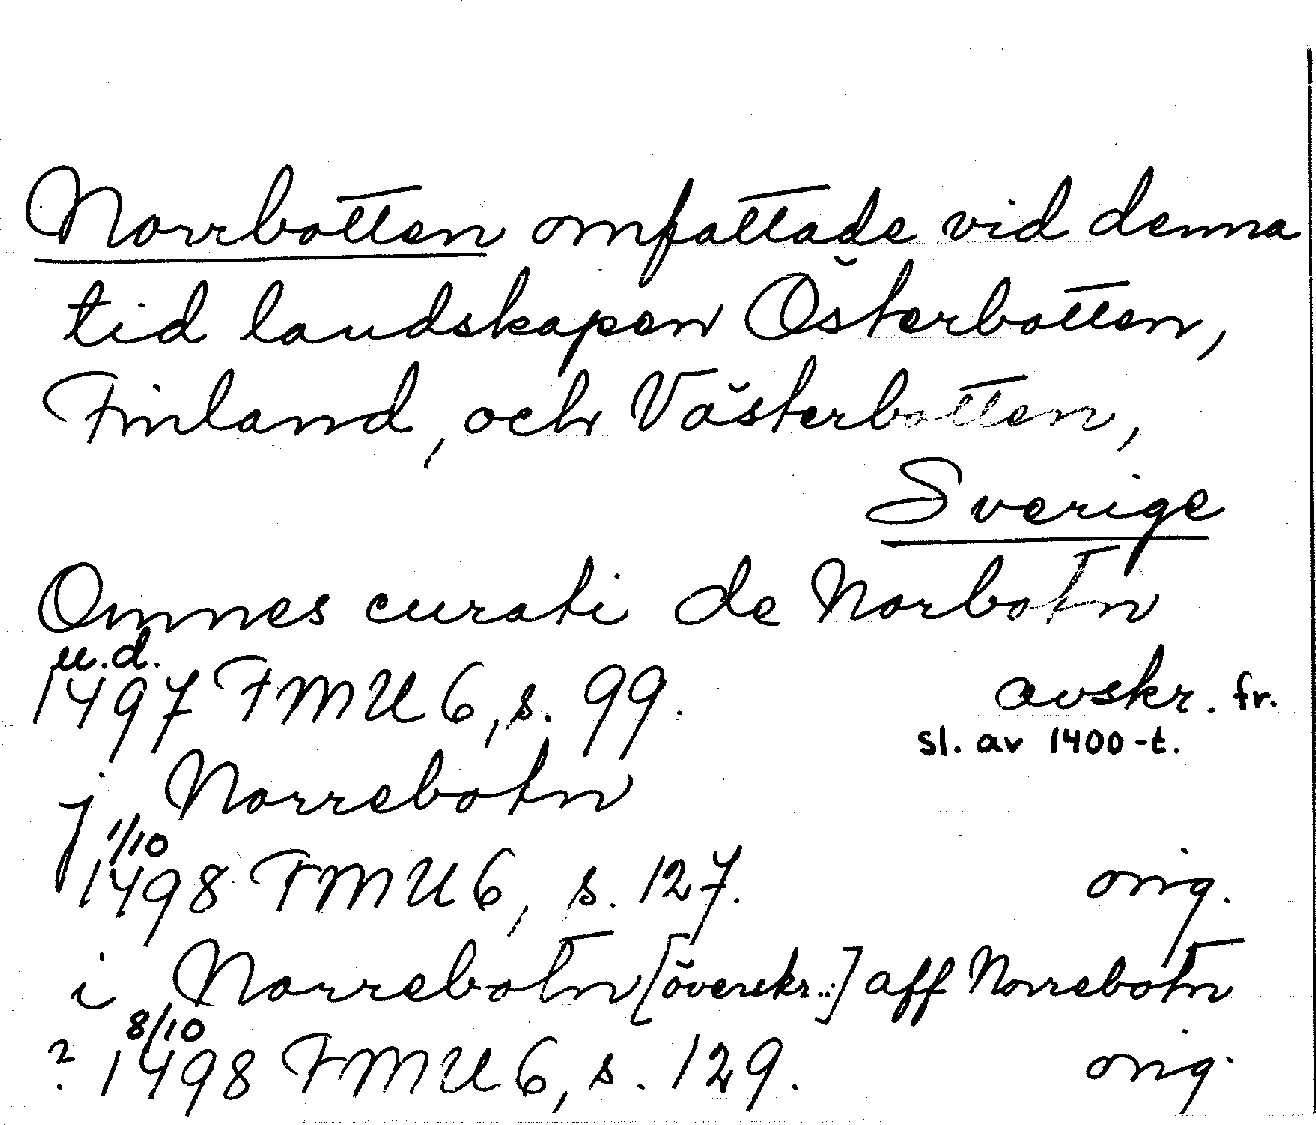 Norrbotten omfattade vid denna
tid landskapen Österbotten,
Finland, och Västerbotten,
Sverige
Omnes curati de Norbotn
u.d.
1497 FMU 6, s. 99. avskr. fr.
sl. av 1400-t.
j Norrebotn
1/10
1498 FMU 6, s. 127. orig.
i Norrebotn [överskr.:] aff Norrebotn
8/10
? 1498 FMU 6, s. 129. orig.